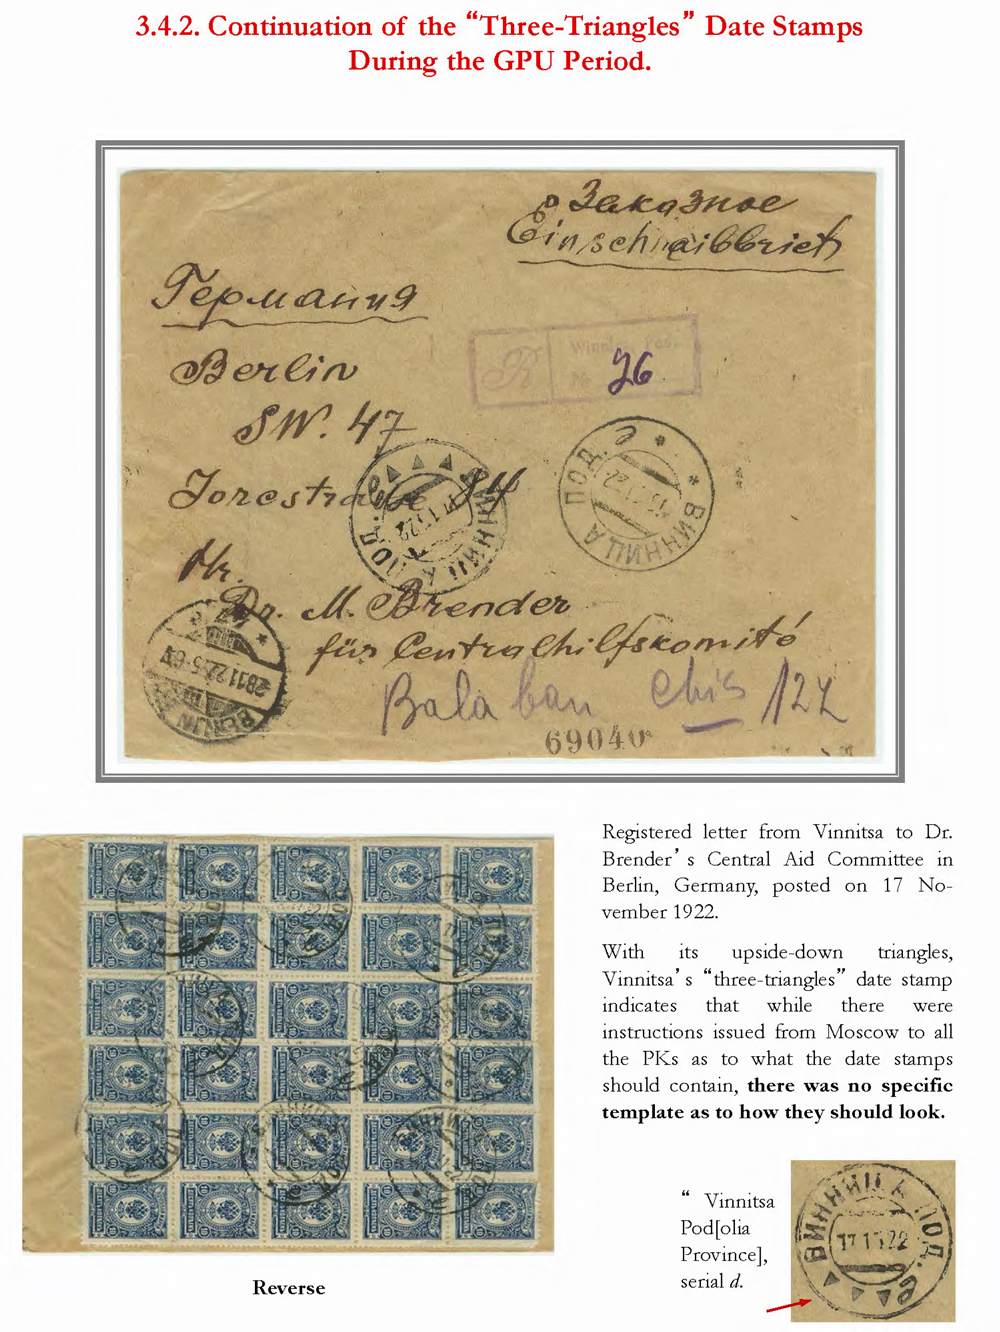 3.4.2. Continuation of the “Three-Triangles” Date Stamps
During the GPU Period.
Заказное
Einschraibbrief
Германия
Berlin
SW. 47
R
№ 26
ВИННИЦА ПОД.
ВИННИЦА ПОД.
Hr.
Dr. M. Brender
für Centralhilfskomité
BERLIN
28.11.22.5-6
Balaban
127
69040
Registered letter from Vinnitsa to Dr.
Brender’s Central Aid Committee in
Berlin, Germany, posted on 17 No-
vember 1922.
With its upside-down triangles,
Vinnitsa’s “three-triangles” date stamp
indicates that while there were
instructions issued from Moscow to all
the PKs as to what the date stamps
should contain, there was no specific
template as to how they should look.
“ Vinnitsa
Pod[olia
Province],
serial d.
ВИННИЦА ПОД.
Reverse